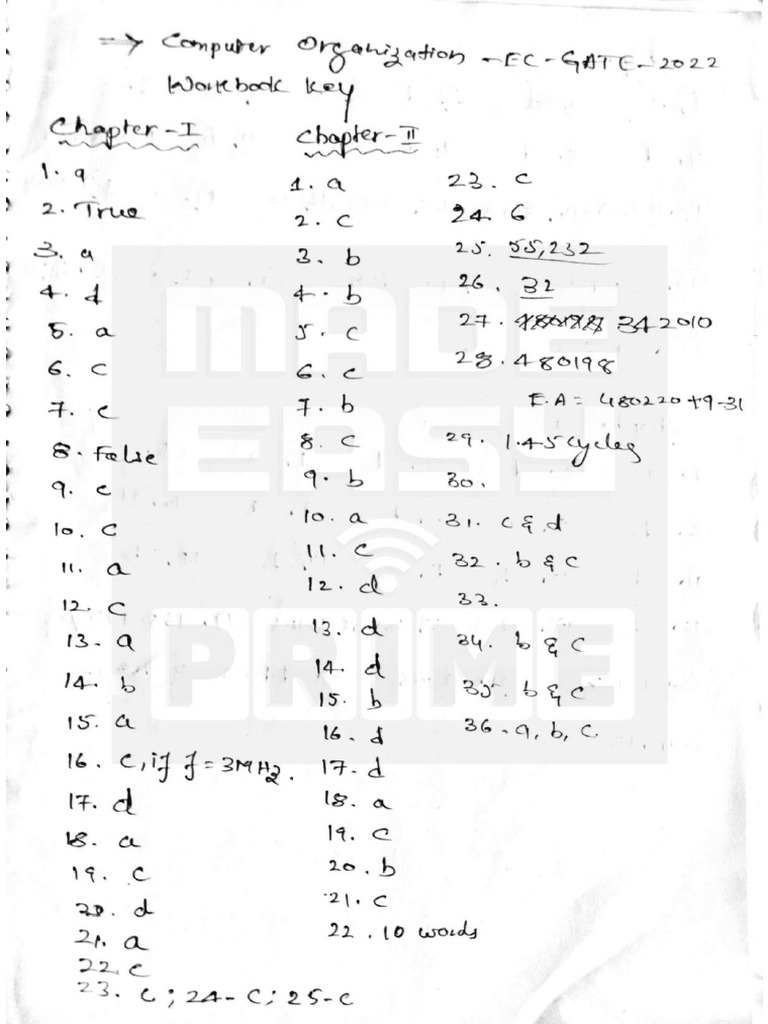 => Computer Organization - EC - GATE - 2022
Workbook Key
Chapter-I
1. a
2. True
3. a
4. d
5. a
6. C
7. c
8. False
9. c
10. C
11. a
12. C
13. a
14. b
15. a
16. C, if f = 3MHz.
17. d
18. a
19. C
20. d
21. a
22. c
23. C ; 24 - C ; 25 - C
Chapter-II
1. a
2. C
3. b
4. b
5. C
6. c
7. b
8. C
9. b
10. a
11. C
12. d
13. d
14. d
15. b
16. d
17. d
18. a
19. C
20. b
21. C
22. 10 words
23. C
24. 6
25. 55,232
26. 32
27. 342010
28. 480198
E.A = 480220+9-31
29. 1.45 cycles
30.
31. c & d
32. b & c
33.
34. b & c
35. b & c
36. a, b, c
MADE
EASY
PRIME